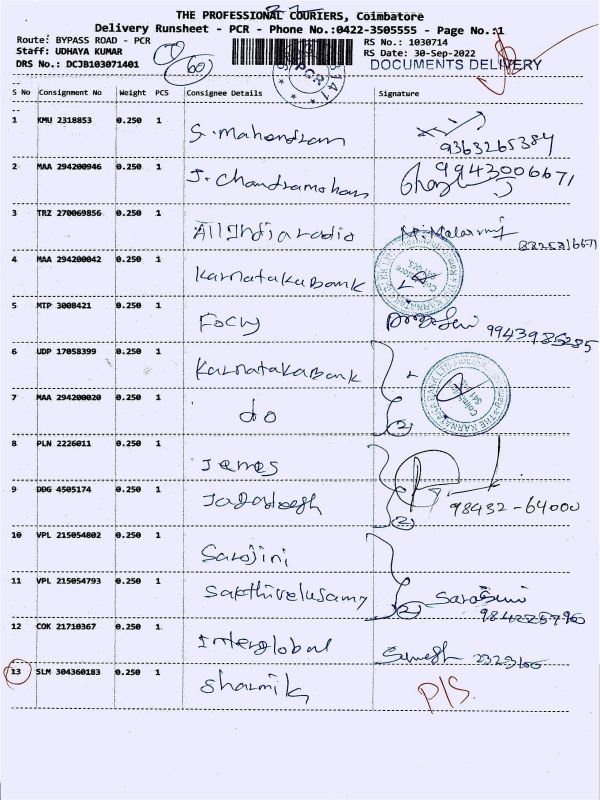 THE PROFESSIONAL COURIERS, Coimbatore
Delivery Runsheet - PCR - Phone No.:0422-3505555 - Page No.:1
Route: BYPASS ROAD - PCR
RS No.: 1030714
Staff: UDHAYA KUMAR
RS Date: 30-Sep-2022
DRS No.: DCJB103071401
60
PCR
DOCUMENTS DELIVERY
S No Consignment No Weight PCS Consignee Details Signature
1 KMU 2318853 0.250 1 S. Mahendram
9363265384
2 MAA 294200946 0.250 1 J. Chandramohan 9943006671
3 TRZ 270069856 0.250 1 All India radio
4 MAA 294200042 0.250 1 Karnataka Bank
5 MTP 3008421 0.250 1 Focus 9943985285
6 UDP 17058399 0.250 1 Karnataka Bank
7 MAA 294200020 0.250 1 do (2)
8 PLN 2226011 0.250 1 James
9 DDG 4505174 0.250 1 Jagadeesh (2) 98432-64000
10 VPL 215054802 0.250 1 Sarojini
11 VPL 215054793 0.250 1 Sakthivelusamy (2) Sarojini
9842257960
12 COK 21710367 0.250 1 Interglobal Suresh 2323100
13 SLM 304360183 0.250 1 Sharmik
P/S.